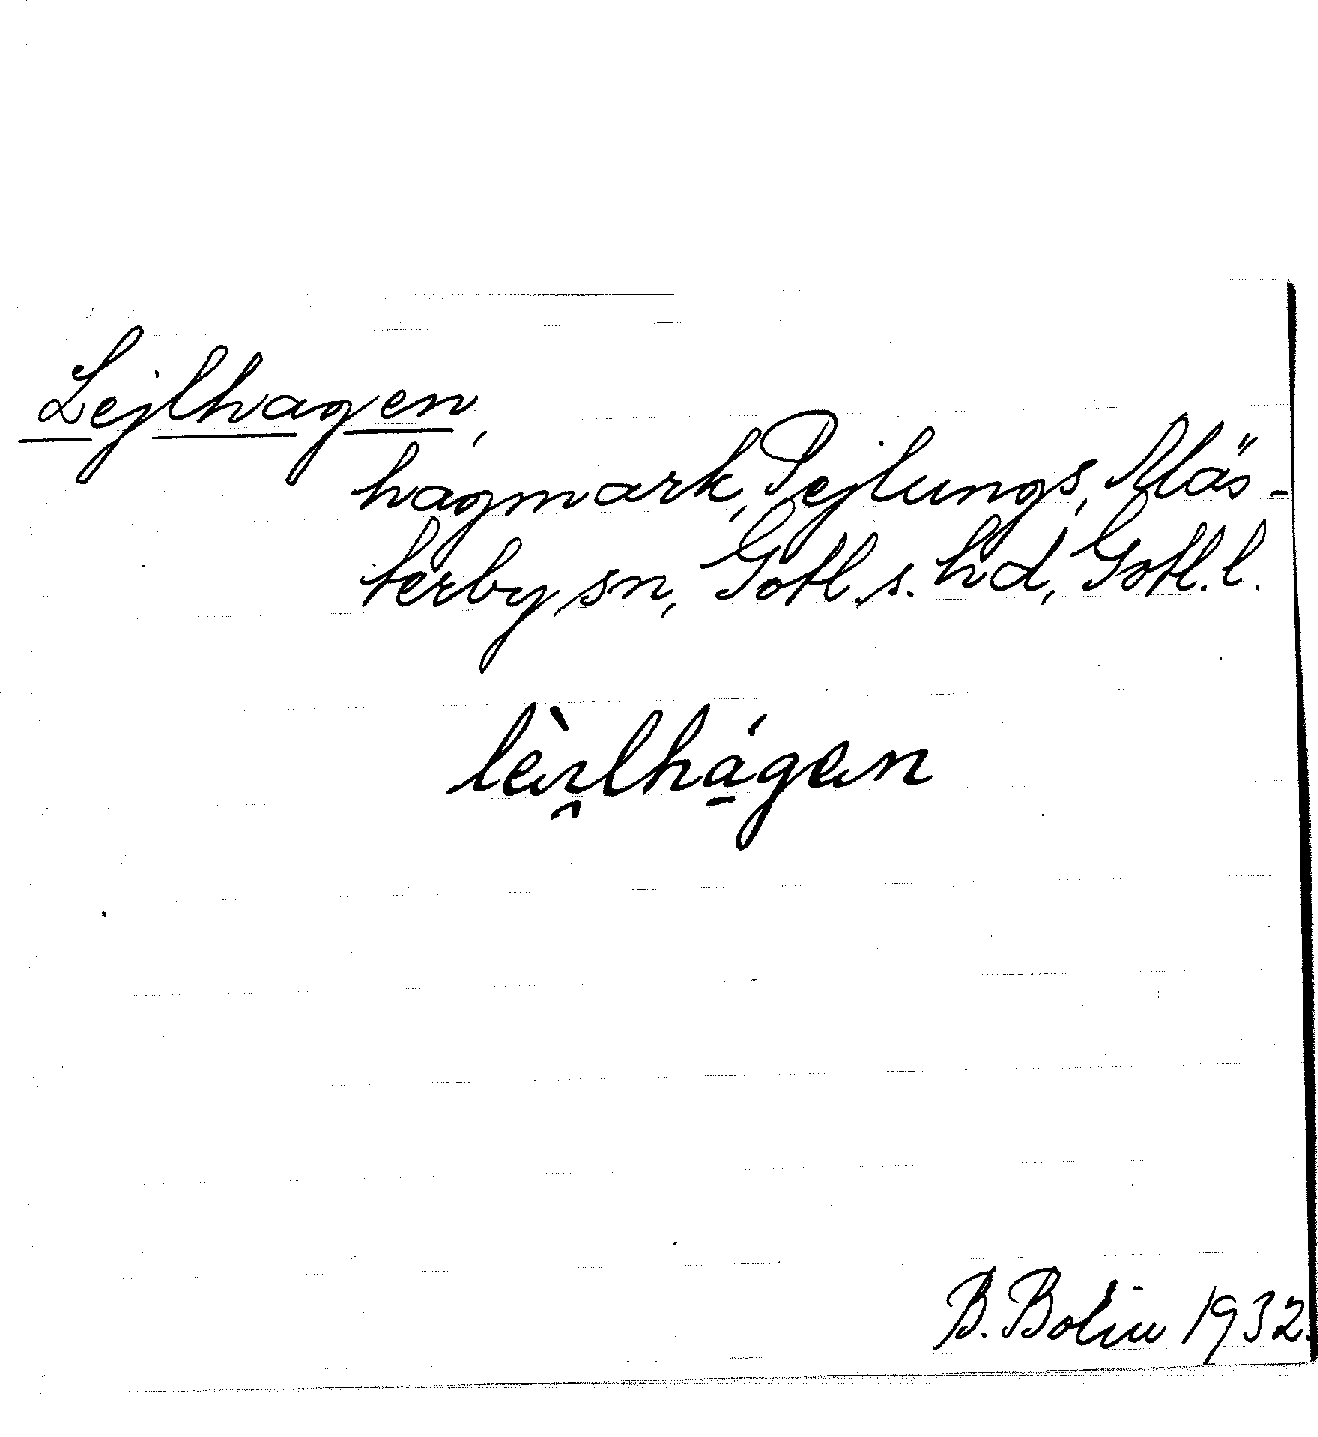 Lejlhagen,
hagmark, Pejlungs, Mäs-
terby sn, Gotl. s. hd, Gotl. l.
B. Bolin 1932.